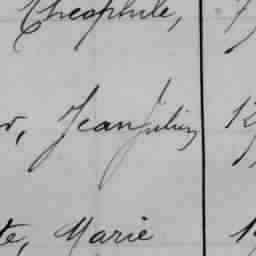 Théophile,
r, Jean Julien
te, Marie